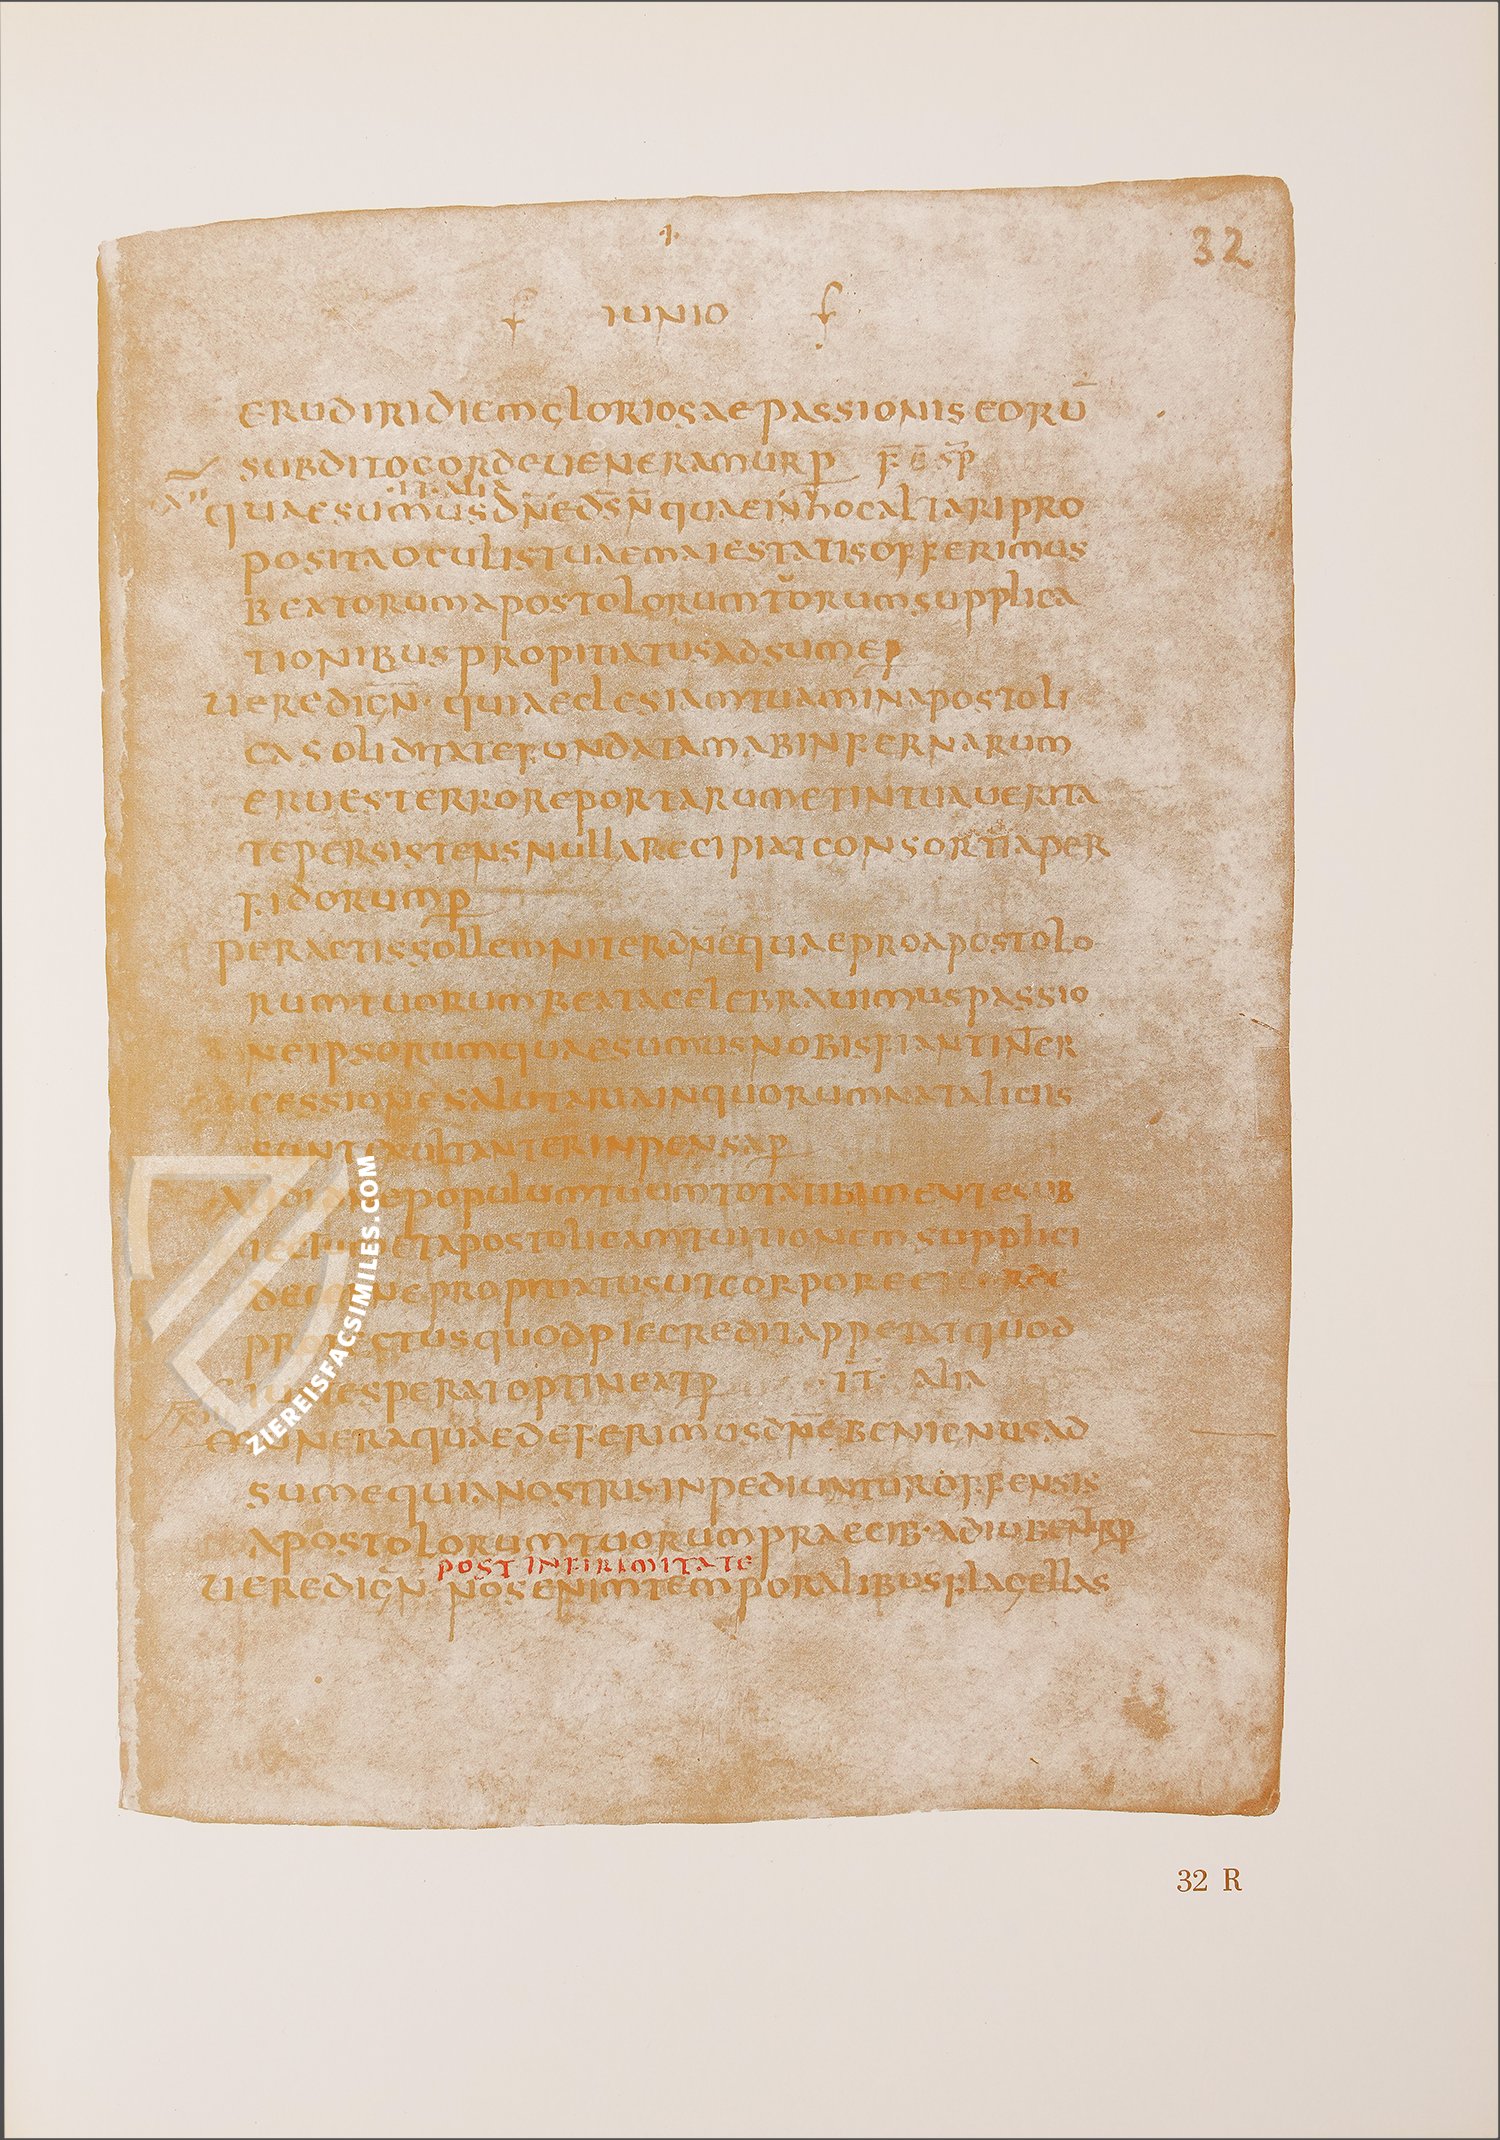 32
IUNIO
ERUDIRI DIEM GLORIOSAE PASSIONIS EORŪ
SUBDITO CORDE UENERAMUR P
IT ALIA
QUAESUMUS DN̄E DS̄ N̄ QUAE IN HOC ALTARI PRO
POSITA OCULIS TUAE MAIESTATIS OFFERIMUS
BEATORUM APOSTOLORUM TORUM SUPPLICA
TIONIBUS PROPITIATUS ADSUME P
UERE DIGN QUI AECLESIAM TUAM IN APOSTOLI
CA SOLIDITATE FUNDATAM AB INFERNARUM
ERUES TERRORE PORTARUM ET IN TUA UERITA
TE PERSISTENS NULLA RECIPIAT CONSORTIA PER
FIDORUM P
PERACTIS SOLLEMNITER DN̄E QUAE PRO APOSTOLO
RUM TUORUM BEATA CELEBRAUIMUS PASSIO
NE IPSORUM QUAESUMUS NOBIS FIANT INTER
CESSIONE SALUTARIA IN QUORUM NATALICIIS
SUNT EXULTANTER INPENSA P
POPULUM TUUM TOTA TIBI MENTE SUB
ET APOSTOLICAM TUITIONEM SUPPLICI
PROPITIATUS UT CORPORE ET CORDE
PROTECTUS QUOD PIE CREDIT APPETAT QUOD
SPERAT OPTINEAT P IT ALIA
MUNERA QUAE DEFERIMUS DN̄E BENIGNUS AD
SUME QUIA NOSTRIS INPEDIUNTUR OFFENSIS
APOSTOLORUM TUORUM PRAECIB· ADIUBENT P
POST INFIRIMITATE
UERE DIGN̄· NOS ENIM TEMPORALIBUS FLAGELLAS
ZIEREISFACSIMILES.COM
32 R